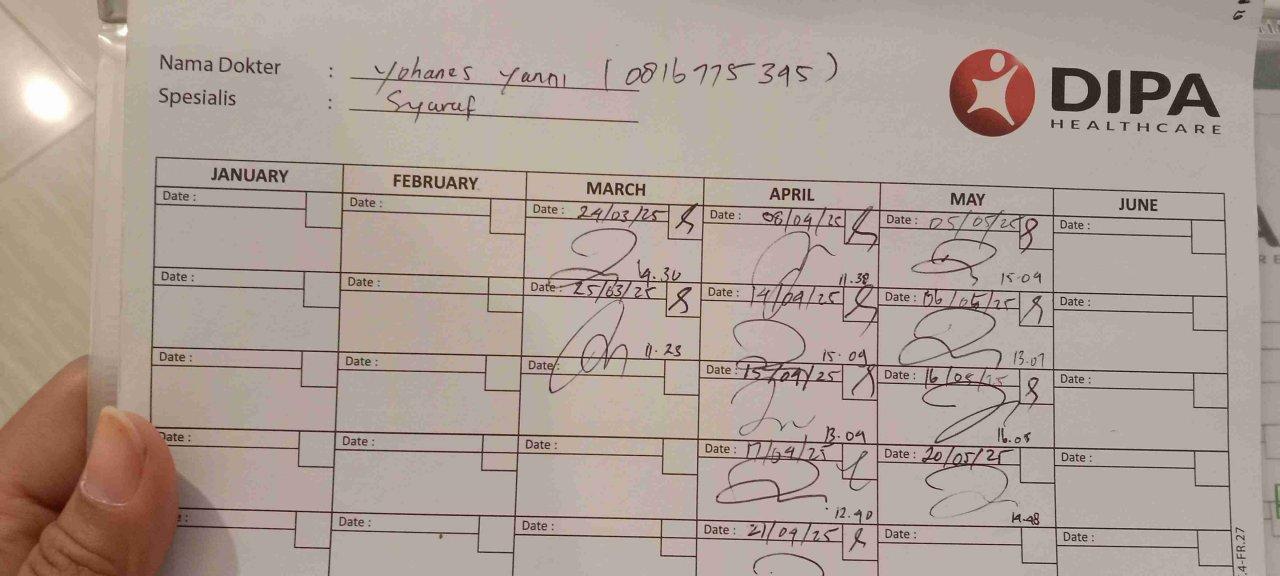 Nama Dokter : Yohanes Yanni (0816775395)
Spesialis : Syaraf
DIPA
HEALTHCARE
JANUARY FEBRUARY MARCH APRIL MAY JUNE
Date : Date : Date : 24/03/25 Date : 08/04/25 Date : 05/05/25 Date :
14.30 11.38 15.09
Date : Date : Date : 25/03/25 Date : 14/04/25 Date : 06/05/25 Date :
11.23 15.09 13.07
Date : Date : Date : Date : 15/04/25 Date : 16/05/25 Date :
13.09 16.05
Date : Date : Date : Date : 17/04/25 Date : 20/05/25 Date :
12.40 14.48
Date : Date : Date : 21/04/25 Date : Date :
4-FR.27